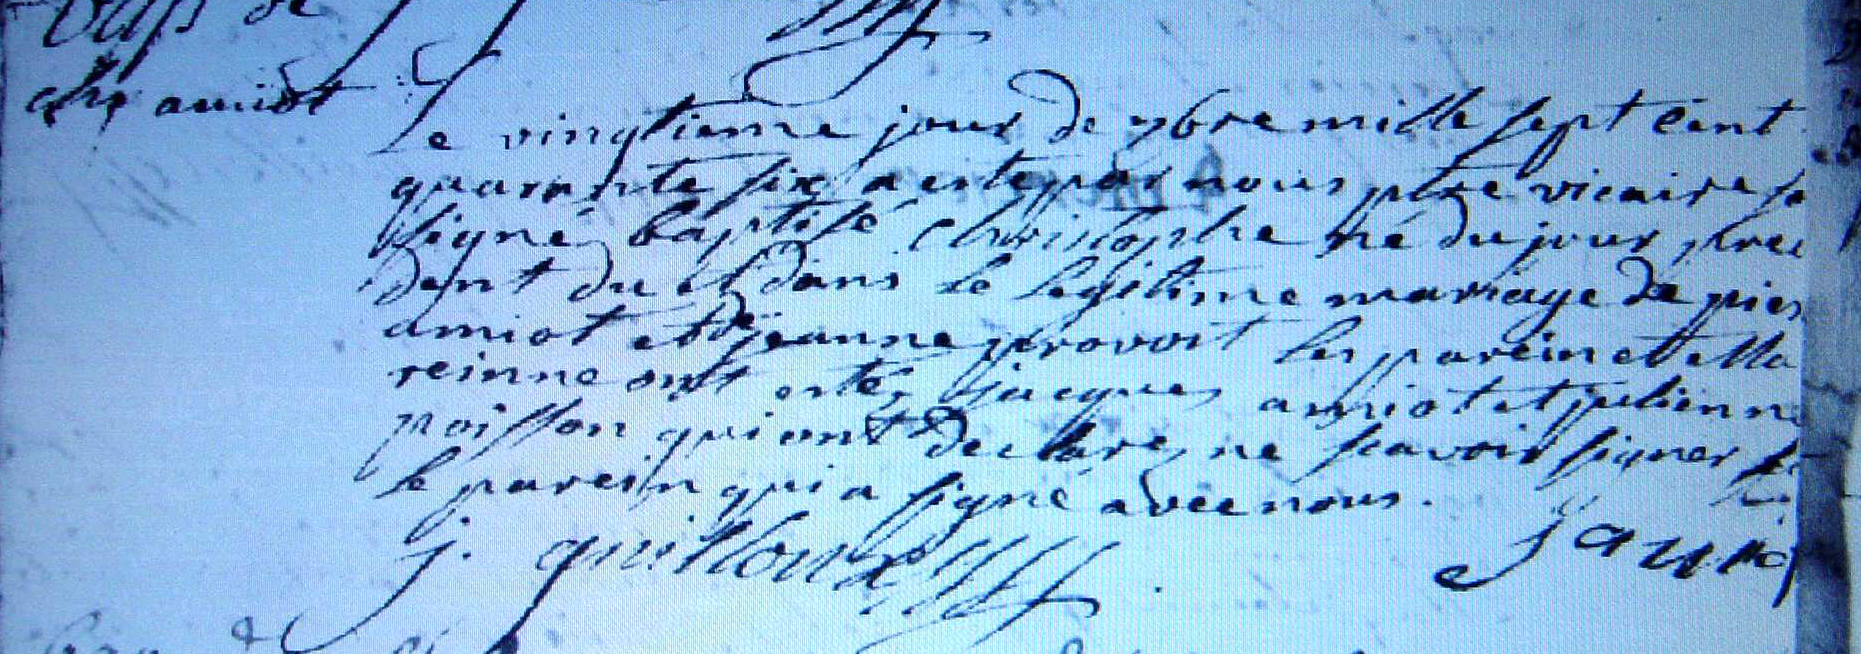 Bap de
chr amiot
Le vingtieme jour de 9bre mille sept cent
quarante six a esté par nous ptre vicaire so
signé baptisé Christophe né du jour prece
dent du et dans le legitime mariage de pier
amiot et de jeanne provost les parein et Ma
reinne ont estez jacques amiot et julienn
poisson qui ont declarez ne scavoir signer
le parein qui a signé avec nous.
j. guilloux